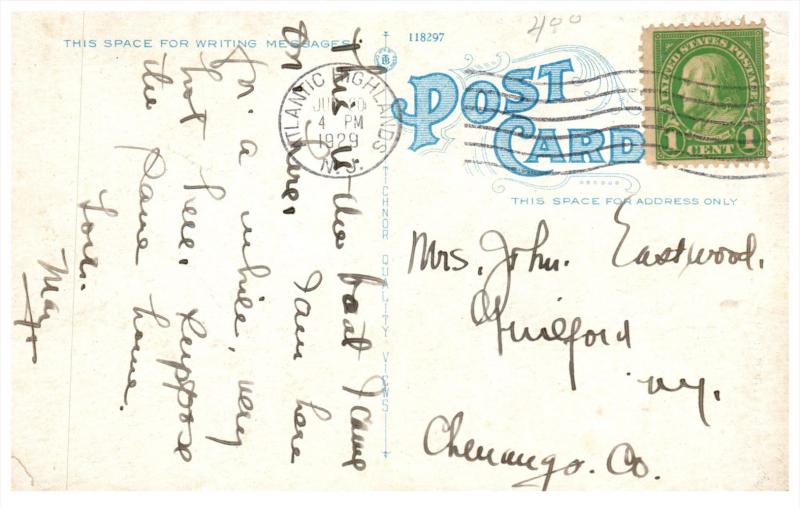 THIS SPACE FOR WRITING MESSAGES
This is the boat I came
on here. I am here
for a while, very
hot here. Suppose
the same home.
Love.
May
118297
400
ATLANTIC HIGHLANDS
4 PM
1929
N.J.
TICHNOR QUALITY VIEWS
POST
CARD
UNITED STATES POSTAGE
1 CENT 1
THIS SPACE FOR ADDRESS ONLY
Mrs. John. Eastwood.
Guilford
N.Y.
Chenango. Co.